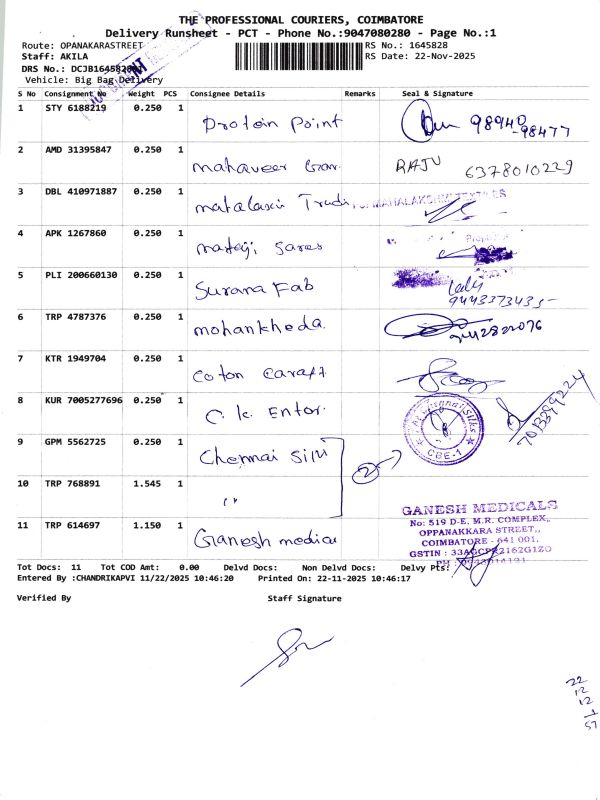 THE PROFESSIONAL COURIERS, COIMBATORE
Delivery Runsheet - PCT - Phone No.:9047080280 - Page No.:1
Route: OPANAKARASTREET
RS No.: 1645828
Staff: AKILA
RS Date: 22-Nov-2025
DRS No.: DCJB164582
Vehicle: Big Bag Delivery
S No Consignment No Weight PCS Consignee Details Remarks Seal & Signature
1 STY 6188219 0.250 1 Protein Point 98940
-98477
2 AMD 31395847 0.250 1 mahaveer RAJU 6378010229
3 DBL 410971887 0.250 1 MAHALAKSHMI
4 APK 1267860 0.250 1
5 PLI 200660130 0.250 1 Surana Fab
9443373435-
6 TRP 4787376 0.250 1 mohankheda.
7 KTR 1949704 0.250 1 Coton
8 KUR 7005277696 0.250 1 C.K. Enter.
9 GPM 5562725 0.250 1 Chennai Silk
CBE-1
2
10 TRP 768891 1.545 1 "
11 TRP 614697 1.150 1 Ganesh medical
GANESH MEDICALS
No: 519 D-E, M.R. COMPLEX,
OPPANAKKARA STREET,
COIMBATORE - 641 001.
GSTIN : 33AGCPR2162G1ZO
Tot Docs: 11 Tot COD Amt: 0.00 Delvd Docs: Non Delvd Docs: Delvy Pts:
Entered By :CHANDRIKAPVI 11/22/2025 10:46:20 Printed On: 22-11-2025 10:46:17
Verified By Staff Signature
22
12
12
1
57